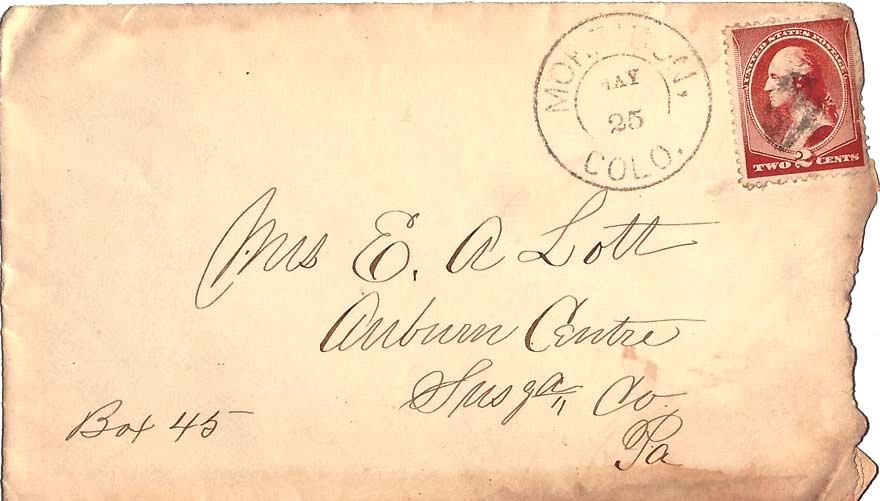 MORRISON,
MAY
25
COLO.
UNITED STATES POSTAGE
TWO 2 CENTS
Mrs E. A Lott
Auburn Centre
Susqa Co
Pa
Box 45